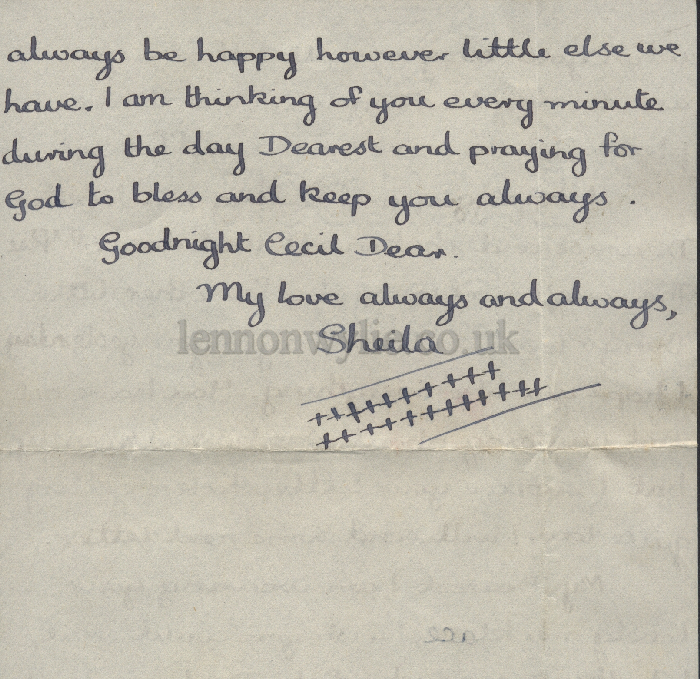 always be happy however little else we
have. I am thinking of you every minute
during the day Dearest and praying for
God to bless and keep you always.
Goodnight Cecil Dear.
My love always and always,
lennonwylie.co.uk
Sheila
++++++++++
++++++++++++